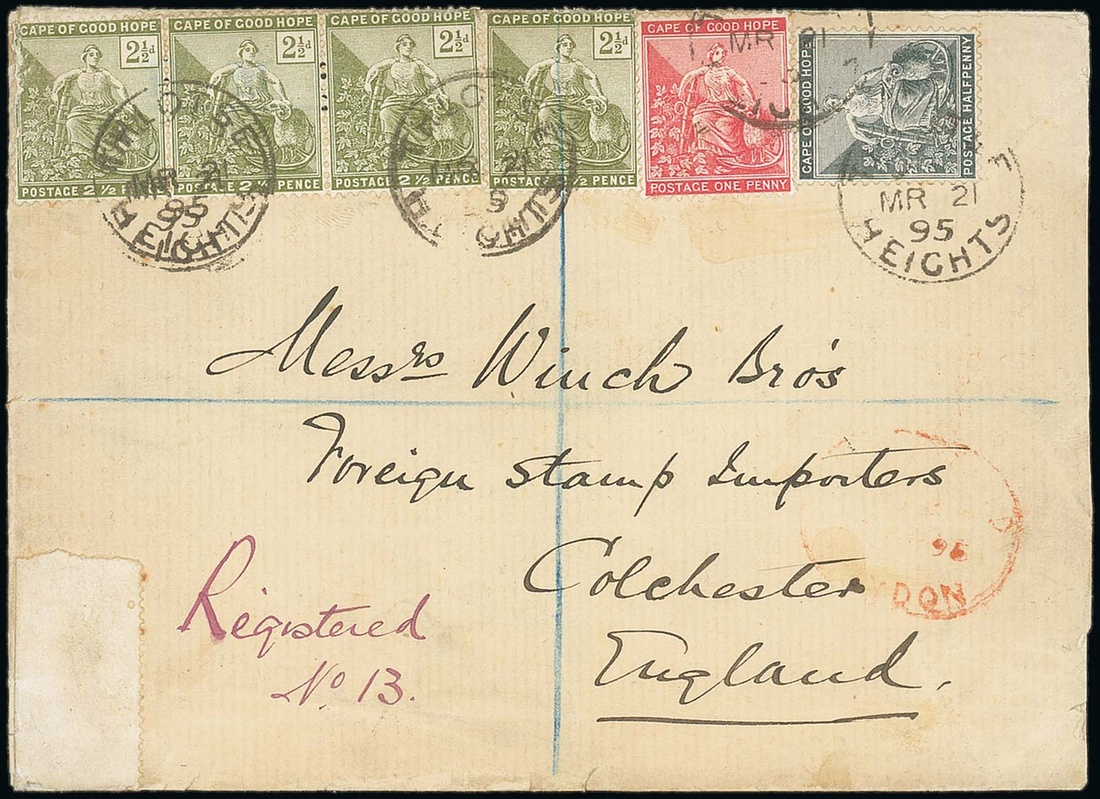 CAPE OF GOOD HOPE
2½d
POSTAGE 2½ PENCE
CAPE OF GOOD HOPE
2½d
POSTAGE 2½ PENCE
CAPE OF GOOD HOPE
2½d
POSTAGE 2½ PENCE
CAPE OF GOOD HOPE
2½d
POSTAGE 2½ PENCE
CAPE OF GOOD HOPE
POSTAGE ONE PENNY
CAPE OF GOOD HOPE
POSTAGE HALFPENNY
MR 21
95
HEIGHTS
MR 21
HEIGHTS
MR 21
MR 21
95
HEIGHTS
Messrs Winch Bro's
Foreign Stamp Importers
Colchester
England.
Registered
No 13.
95